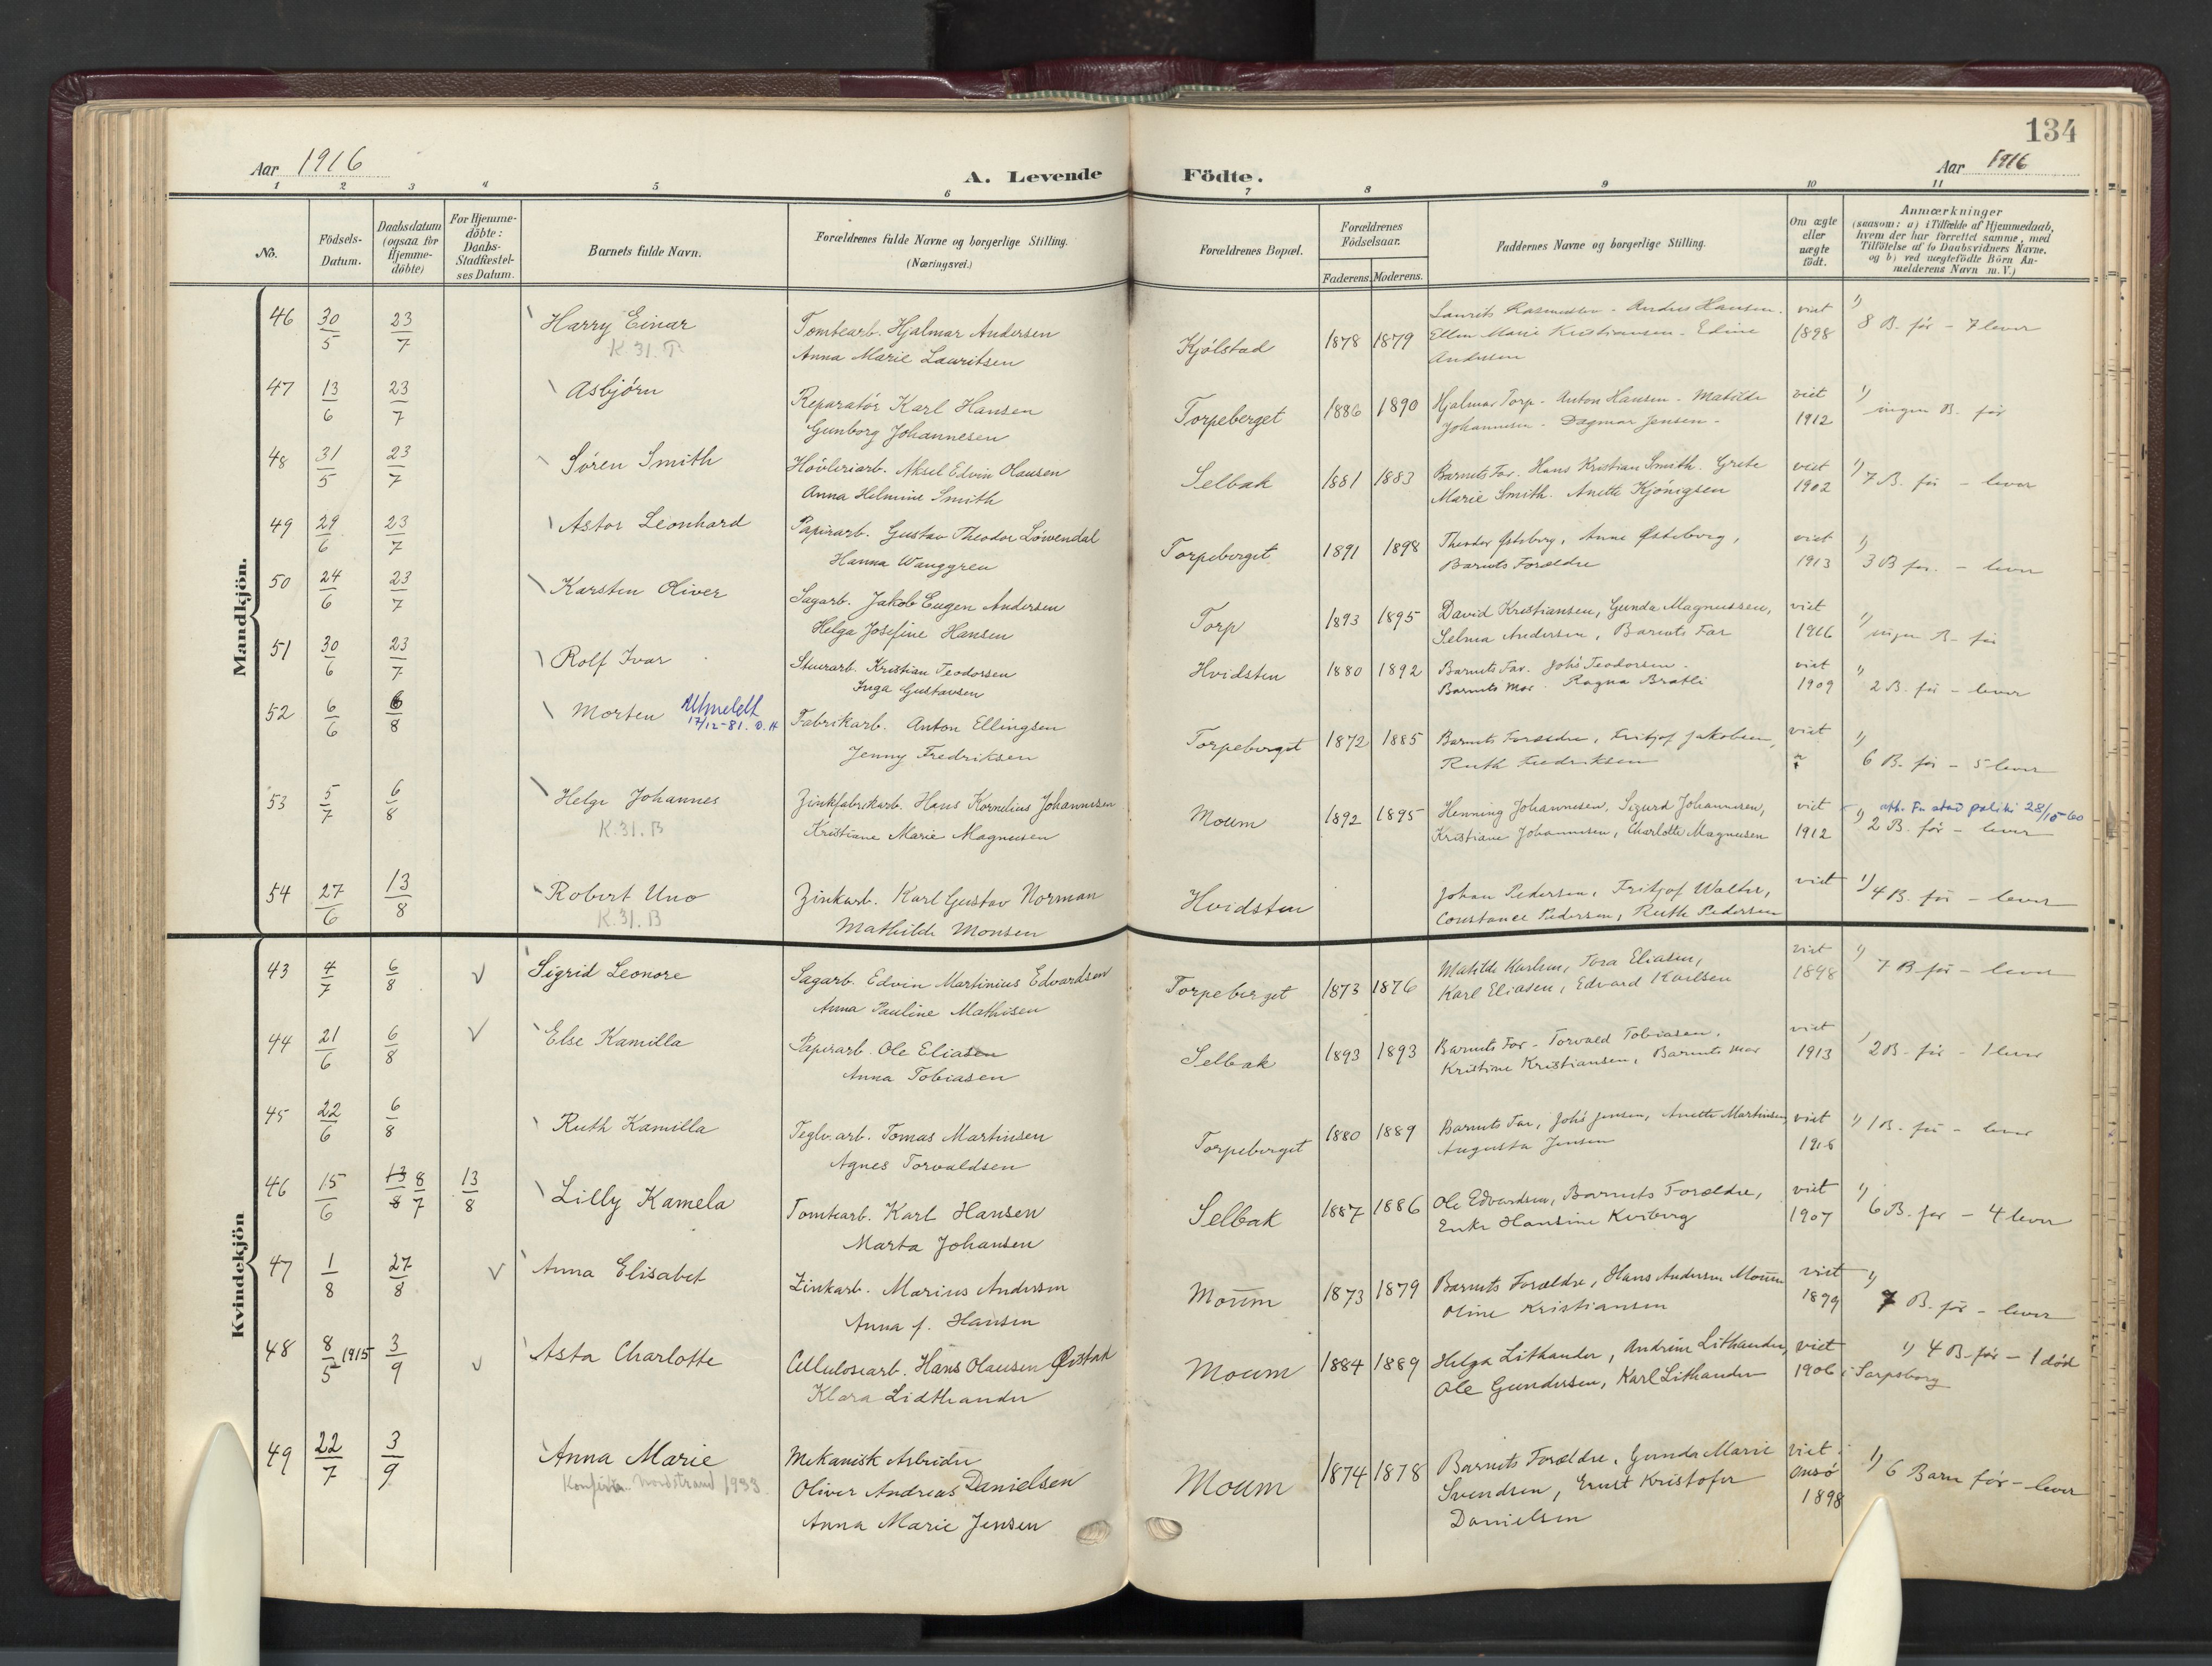 134
Aar 1916
A. Levende Födte.
Aar 1916
1 2 3 4 5 6 7 8 9 10 11
No.
Födsels-Datum.
Daabsdatum (ogsaa for Hjemme-döbte)
For Hjemme-döbte: Daabs-Stadfæstel-ses Datum.
Barnets fulde Navn.
Forældrenes fulde Navne og borgerlige Stilling.
(Næringsvei.)
Forældrenes Bopæl.
Forældrenes Födselsaar.
Faderens. Moderens.
Faddernes Navne og borgerlige Stilling.
Om ægte eller uægte födt.
Anmærkninger
(saasom: a) i Tilfælde af Hjemmedaab,
hvem der har forrettet samme, med
Tilföielse af to Daabsvidners Navne.
og b) ved uægtefödte Börn An-
melderens Navn m. V.)
Mandkjön.
46 30/5 23/7 Harry Einar Tomtearb. Hjalmar Andersen Kjølstad 1878 1879 Laurits Rasmussen - Andreas Hansen. viet 1) 8 B. før - 7 lever
K. 31. T. Anna Marie Lauritsen Ellen Marie Kristiansen - Edine 1898
Andersen
47 13/6 23/7 Asbjørn Reparatør Karl Hansen Torpeberget 1886 1890 Hjalmar Torp - Anton Hansen - Matilde viet 1) ingen B. før
Gunborg Johannesen Johannesen - Dagmar Jensen - 1912
48 31/5 23/7 Søren Smith Høvleriarb. Aksel Edvin Olausen Selbak 1881 1883 Barnets Far. Hans Kristian Smith. Grete viet 1) 7 B. før - lever
Anna Helmine Smith Marie Smith. Anette Kjønigsen 1902
49 29/6 23/7 Astor Leonhard Papirarb. Gustav Theodor Löwendal Torpeberget 1891 1898 Theodor Østeberg, Anne Østeberg, viet 1) 3 B før. - lever
Hanna Wanggren Barnets Forældre 1913
50 24/6 23/7 Karsten Oliver Sagarb. Jakob Eugen Andersen Torp 1893 1895 David Kristiansen, Gunda Magnussen, viet 1) ingen B - før
Helga Josefine Hansen Selma Andersen, Barnets Far 1916
51 30/6 23/7 Rolf Ivar Stuerarb. Kristian Teodorsen Hvidsten 1880 1892 Barnets Far. Johs Teodorsen. viet 1) 2 B. før - lever
Inga Gustavsen Barnets Mor. Ragna Bratli 1909
52 6/6 6/8 Morten Utmeldt 17/12-81. O.H Fabrikarb. Anton Ellingsen Torpeberget 1872 1885 Barnets Forældre, Fritjof Jakobsen, viet 1) 6 B. før - 5 lever
Jenny Fredriksen Ruth Fredriksen ?
53 5/7 6/8 Helge Johannes Zinkfabrikarb. Hans Kornelius Johannesen Moum 1892 1895 Henning Johannesen, Sigurd Johannesen, viet att. Fr. stad politi 28/10-60
K. 31. B Kristiane Marie Magnusen Kristiane Johannesen, Charlotte Magnusen 1912 1) 2 B. før - lever
54 27/6 13/8 Robert Uno Zinkarb. Karl Gustav Norman Hvidsten Johan Pedersen, Fritjof Walter, viet 1) 4 B. før - lever
K. 31. B Mathilde Monsen Constance Pedersen, Ruth Pedersen
Kvindekjön
43 4/7 6/8 √ Sigrid Leonore Sagarb. Edvin Martinius Edvardsen Torpeberget 1873 1876 Matilde Karlsen, Tora Eliasen, viet 1) 7 B før - lever
Anna Pauline Mathisen Karl Eliasen, Edvard Karlsen 1898
44 21/6 6/8 √ Else Kamilla Papirarb. Ole Eliasen Selbak 1893 1893 Barnets Far - Torvald Tobiasen, viet 1) 2 B - før - 1 lever
Anna Tobiasen Kristine Kristiansen, Barnets mor 1913
45 22/6 6/8 Ruth Kamilla Teglv. arb. Tomas Martinsen Torpeberget 1880 1889 Barnets Far, Johs Jensen, Anette Martinsen, viet 1) 1 B. før - lever
Agnes Torvaldsen Augusta Jensen 1916
46 15/6 13/8 8/7 13/8 Lilly Kamela Tomtearb. Karl Hansen Selbak 1887 1886 Ole Edvardsen, Barnets Forældre, viet 1) 6 B. før - 4 lever
Marta Johansen Enke Hansine Kviberg 1907
47 1/8 27/8 √ Anna Elisabet Zinkarb. Marius Andersen Moum 1873 1879 Barnets Forældre, Hans Andersen Moum viet 1) 7 B. før - lever
Anna f. Hansen Oline Kristiansen 1899
48 8/5 1915 3/9 √ Asta Charlotte Cellulosearb. Hans Olausen Qvistad Moum 1884 1889 Helga Lithander, Andrine Lithander, viet 1) 4 B. før - 1 død
Klara Lidthander Ole Gundersen, Karl Lithander 1906 i Sarpsborg
49 22/7 3/9 Anna Marie Mekanisk Arbeider Moum 1874 1878 Barnets Forældre, Gunda Marie viet i 1) 6 Barn før - lever
Konfirm. Nordstrand 1933. Oliver Andreas Danielsen Svendsen, Ernst Kristofer Onsø
Anna Marie Jensen Danielsen 1898